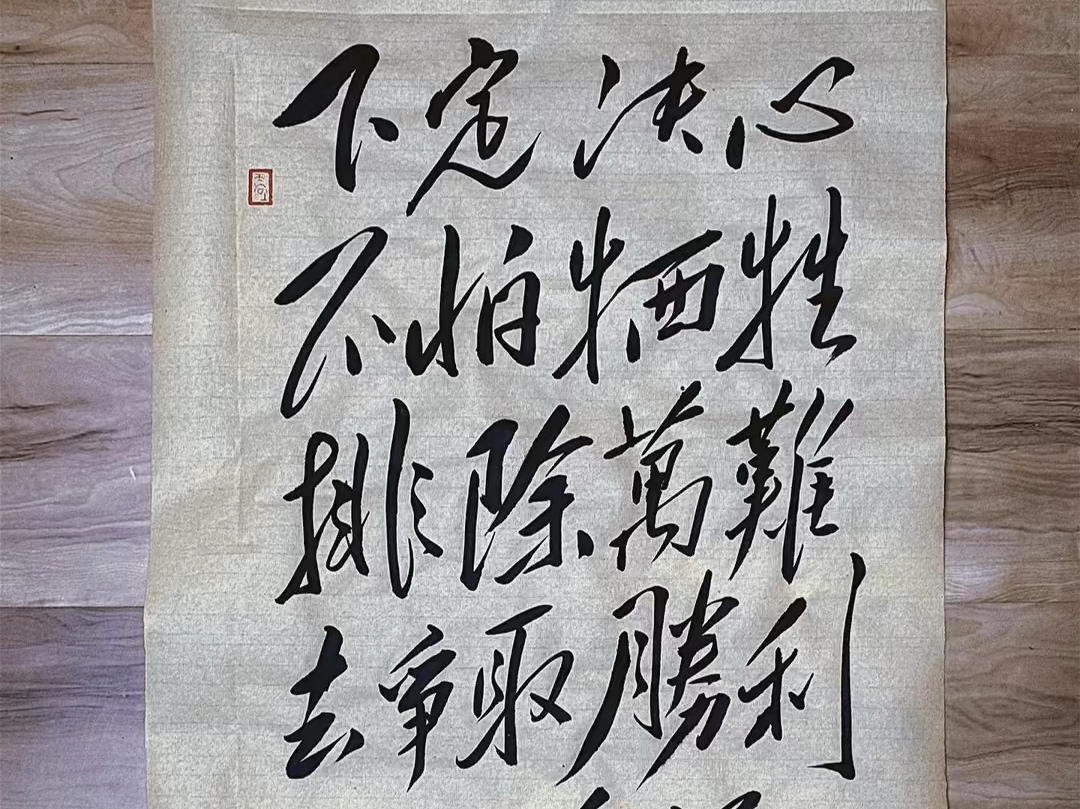 下定决心
不怕牺牲
排除萬難
去争取勝利